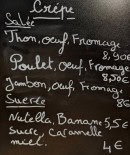 Crêpe
Salée
Thon, œuf, Fromage
8,90€
Poulet, œuf, Fromage
8,50€
Jambon, œuf, Fromage
8€
Sucrée
Nutella, Banane 5,5€
Sucre, Caramelle
miel.
4€